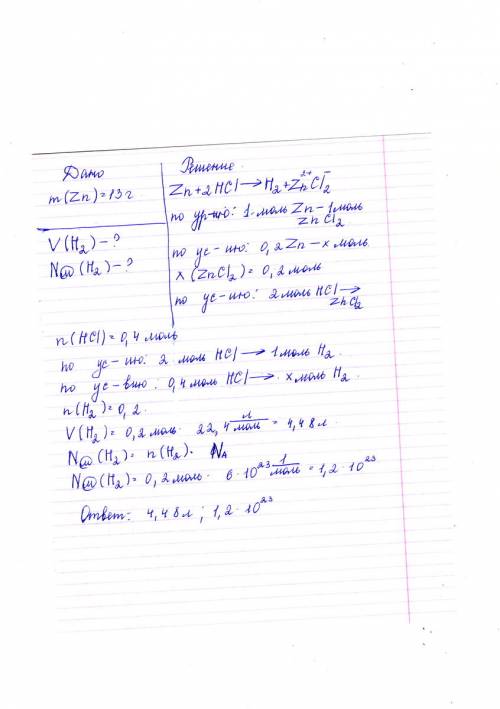 Дано
m(Zn) = 13 г
V(H₂) – ?
N(м)(H₂) – ?
Решение.
Zn + 2HCl → H₂ + Zn²⁺Cl₂⁻
по ур-ию: 1 моль Zn – 1 моль
ZnCl₂
по ус-ию: 0,2 Zn – x моль
x (ZnCl₂) = 0,2 моль
по ус-ию: 2 моль HCl →
ZnCl₂
n(HCl) = 0,4 моль
по ус-ию: 2 моль HCl → 1 моль H₂.
по ус-вию: 0,4 моль HCl → x моль H₂.
n(H₂) = 0,2.
V(H₂) = 0,2 моль · 22,4 л/моль = 4,48 л.
N(м)(H₂) = n(H₂) · NA
N(м)(H₂) = 0,2 моль · 6 · 10²³ 1/моль = 1,2 · 10²³
Ответ: 4,48 л; 1,2 · 10²³